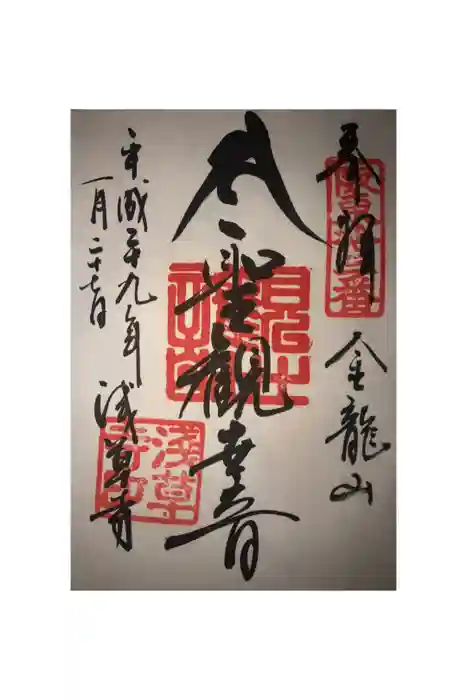 奉拝
坂東拾三番
金龍山
聖観世音
平成二十九年
一月二十七日
浅草寺
浅草寺印